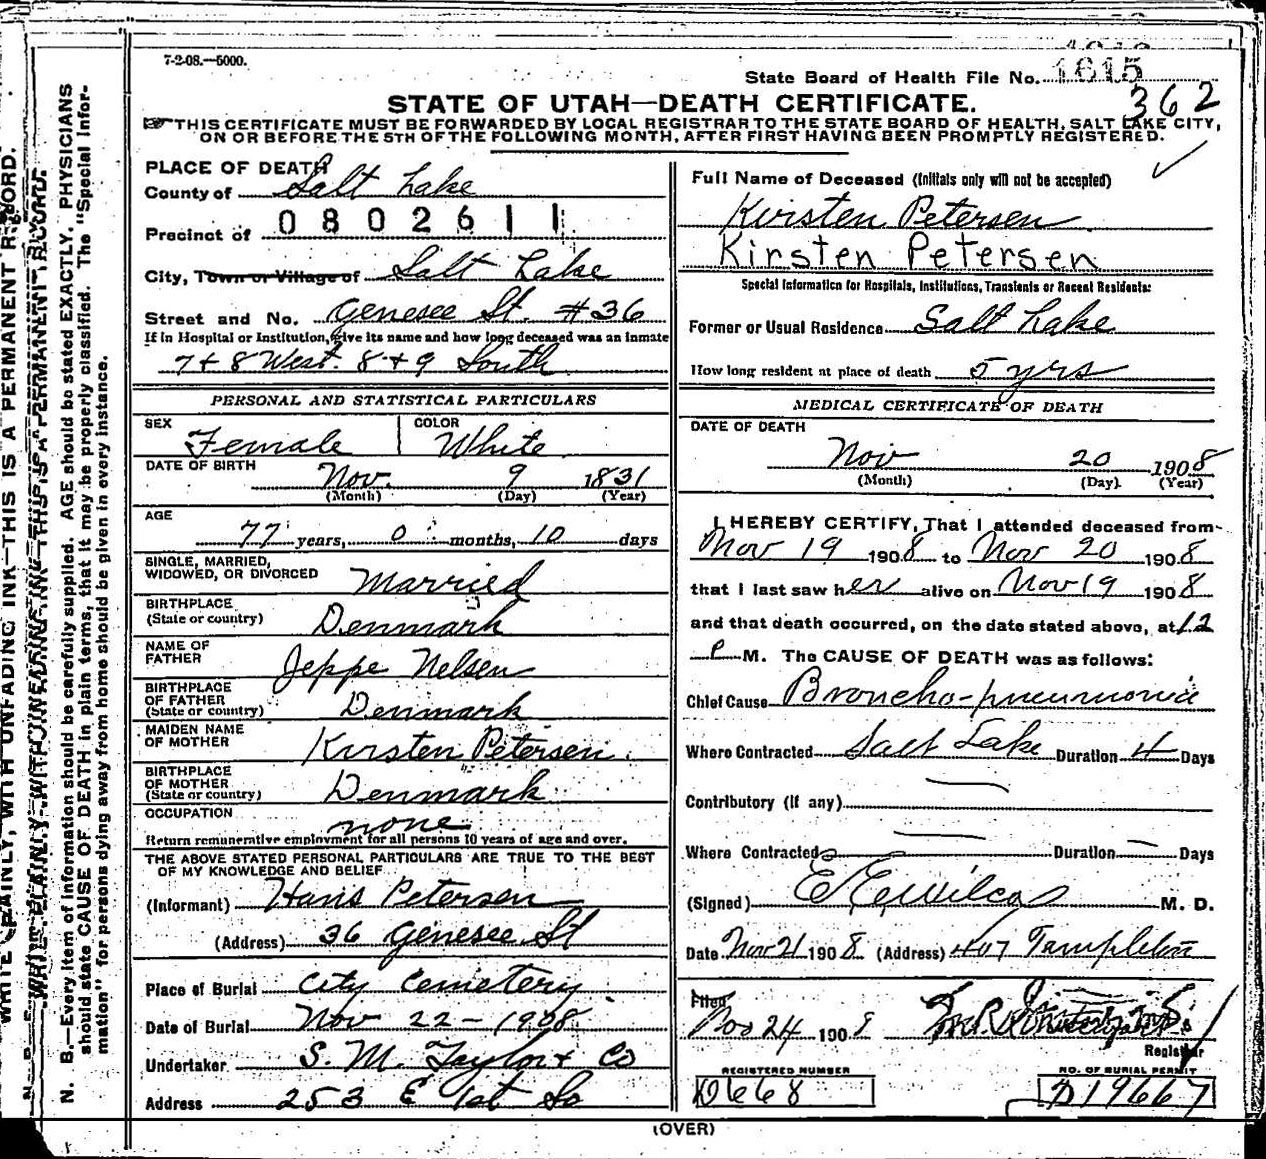 7-2-08.—5000.
State Board of Health File No. 1615
362
STATE OF UTAH—DEATH CERTIFICATE.
THIS CERTIFICATE MUST BE FORWARDED BY LOCAL REGISTRAR TO THE STATE BOARD OF HEALTH, SALT LAKE CITY,
ON OR BEFORE THE 5TH OF THE FOLLOWING MONTH, AFTER FIRST HAVING BEEN PROMPTLY REGISTERED.
PLACE OF DEATH
County of Salt Lake
Precinct of 0802611
City, Town or Village of Salt Lake
Street and No. Genesee St. #36
If in Hospital or Institution, give its name and how long deceased was an inmate
7 + 8 West. 8 + 9 South
PERSONAL AND STATISTICAL PARTICULARS
SEX Female COLOR White
DATE OF BIRTH Nov. 9 1831
(Month) (Day) (Year)
AGE
77 years, 0 months, 10 days
SINGLE, MARRIED,
WIDOWED, OR DIVORCED Married
BIRTHPLACE
(State or country) Denmark
NAME OF
FATHER Jeppe Nelsen
BIRTHPLACE
OF FATHER
(State or country) Denmark
MAIDEN NAME
OF MOTHER Kirsten Petersen.
BIRTHPLACE
OF MOTHER
(State or country) Denmark
OCCUPATION none
Return remunerative employment for all persons 10 years of age and over.
THE ABOVE STATED PERSONAL PARTICULARS ARE TRUE TO THE BEST
OF MY KNOWLEDGE AND BELIEF
(Informant) Hans Petersen
(Address) 36 Genesee St
Place of Burial City Cemetery
Date of Burial Nov 22 - 1908
Undertaker S. M. Taylor + Co
Address 253 E 1st So
Full Name of Deceased (Initials only will not be accepted)
Kirsten Petersen
Kirsten Petersen
Special Information for Hospitals, Institutions, Transients or Recent Residents:
Former or Usual Residence Salt Lake
How long resident at place of death 5 yrs
MEDICAL CERTIFICATE OF DEATH
DATE OF DEATH
Nov 20 1908
(Month) (Day). (Year)
I HEREBY CERTIFY, That I attended deceased from
Nov 19 1908 to Nov 20 1908
that I last saw her alive on Nov 19 1908
and that death occurred, on the date stated above, at 12
P M. The CAUSE OF DEATH was as follows:
Chief Cause Broncho-pneumonia
Where Contracted Salt Lake Duration 4 Days
Contributory (if any) —
Where Contracted — Duration — Days
(Signed) E E Wilcox M. D.
Date Nov 21 1908 (Address) 407 Templeton
Filed
Nov 24 1908
Registrar
REGISTERED NUMBER
D668
NO. OF BURIAL PERMIT
D19667
(OVER)
N. B.—Every item of information should be carefully supplied. AGE should be stated EXACTLY. PHYSICIANS
should state CAUSE OF DEATH in plain terms, that it may be properly classified. The "Special Infor-
mation" for persons dying away from home should be given in every instance.
WRITE PLAINLY, WITH UNFADING INK—THIS IS A PERMANENT RECORD.